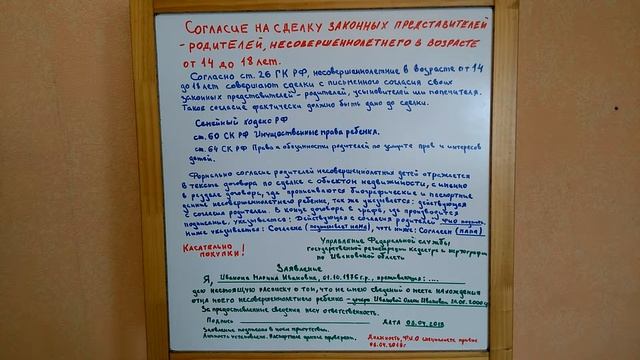 Согласие на сделку законных представителей
- родителей, несовершеннолетнего в возрасте
от 14 до 18 лет.
Согласно ст. 26 ГК РФ, несовершеннолетние в возрасте от 14
до 18 лет совершают сделки с письменного согласия своих
законных представителей - родителей, усыновителей или попечителя.
Такое согласие фактически должно быть дано до сделки.
Семейный кодекс РФ
ст. 60 СК РФ Имущественные права ребенка.
ст. 64 СК РФ Права и обязанности родителей по защите прав и интересов
детей.
Формально согласие родителей несовершеннолетних детей отражается
в тексте договора по сделке с объектом недвижимости, а именно
в разделе договора, где прописываются биографические и паспортные
данные несовершеннолетнего ребенка, так же указывается: действующая
с согласия родителей. В конце договора в графе, где производится
подписание, указывается: Действующая с согласия родителей ФИО
ниже указывается: Согласна (подписывает мама), чуть ниже: Согласен (папа)
Касательно
покупки!
Управление Федеральной службы
государственной регистрации кадастра и картографии
по Ивановской области
Заявление
Я, Иванова Марина Ивановна, 01.10.1976 г.р., проживающая: ....
даю настоящую расписку о том, что не имею сведений о месте нахождения
отца моего несовершеннолетнего ребенка - Иванова
За предоставленные сведения несу ответственность.
Подпись Дата 03.04.2018
Заявление подписано в моем присутствии.
Личность установлена. Паспортные данные проверены.
Должность, Ф.И.О специалиста
03.04.2018 г.